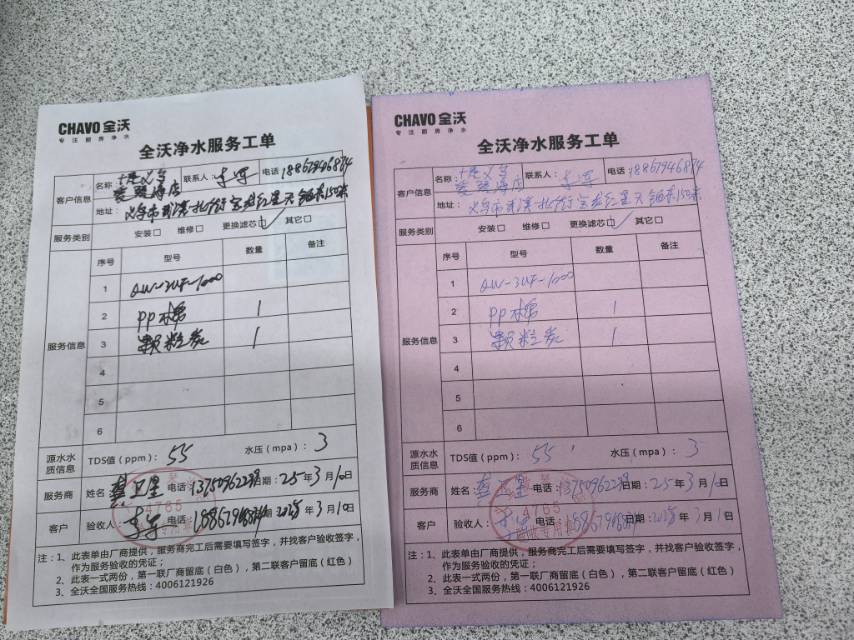 CHAVO 全沃
专注厨房净水
全沃净水服务工单
客户信息
名称：
联系人：李军
电话 18867946884
地址：义乌市
服务类别
安装□ 维修□ 更换滤芯☑ 其它□
服务信息
序号 型号 数量 备注
1 QW-3UF-1000
2 PP棉 1
3 颗粒炭 1
4
5
6
源水水质信息
TDS值（ppm）：55 水压（mpa）：3
服务商
姓名： 卫星 电话： 日期：25年3月10日
客户
验收人：李军 电话 日期：2025年3月10日
注：1、此表单由厂商提供，服务商完工后需要填写签字，并找客户验收签字，
作为服务验收的凭证；
2、此表一式两份，第一联厂商留底（白色），第二联客户留底（红色）
3、全沃全国服务热线：4006121926
CHAVO 全沃
专注厨房净水
全沃净水服务工单
客户信息
名称：
联系人：李军
电话：18867946884
地址：义乌市
服务类别
安装□ 维修□ 更换滤芯☑ 其它□
服务信息
序号 型号 数量 备注
1 QW-3UF-1000
2 PP棉 1
3 颗粒炭 1
4
5
6
源水水质信息
TDS值（ppm）：55 水压（mpa）：3
服务商
姓名： 卫星 电话： 日期：25年3月10日
客户
验收人：李军 电话： 日期：2025年3月1日
注：1、此表单由厂商提供，服务商完工后需要填写签字，并找客户验收签字，
作为服务验收的凭证；
2、此表一式两份，第一联厂商留底（白色），第二联客户留底（红色）
3、全沃全国服务热线：4006121926